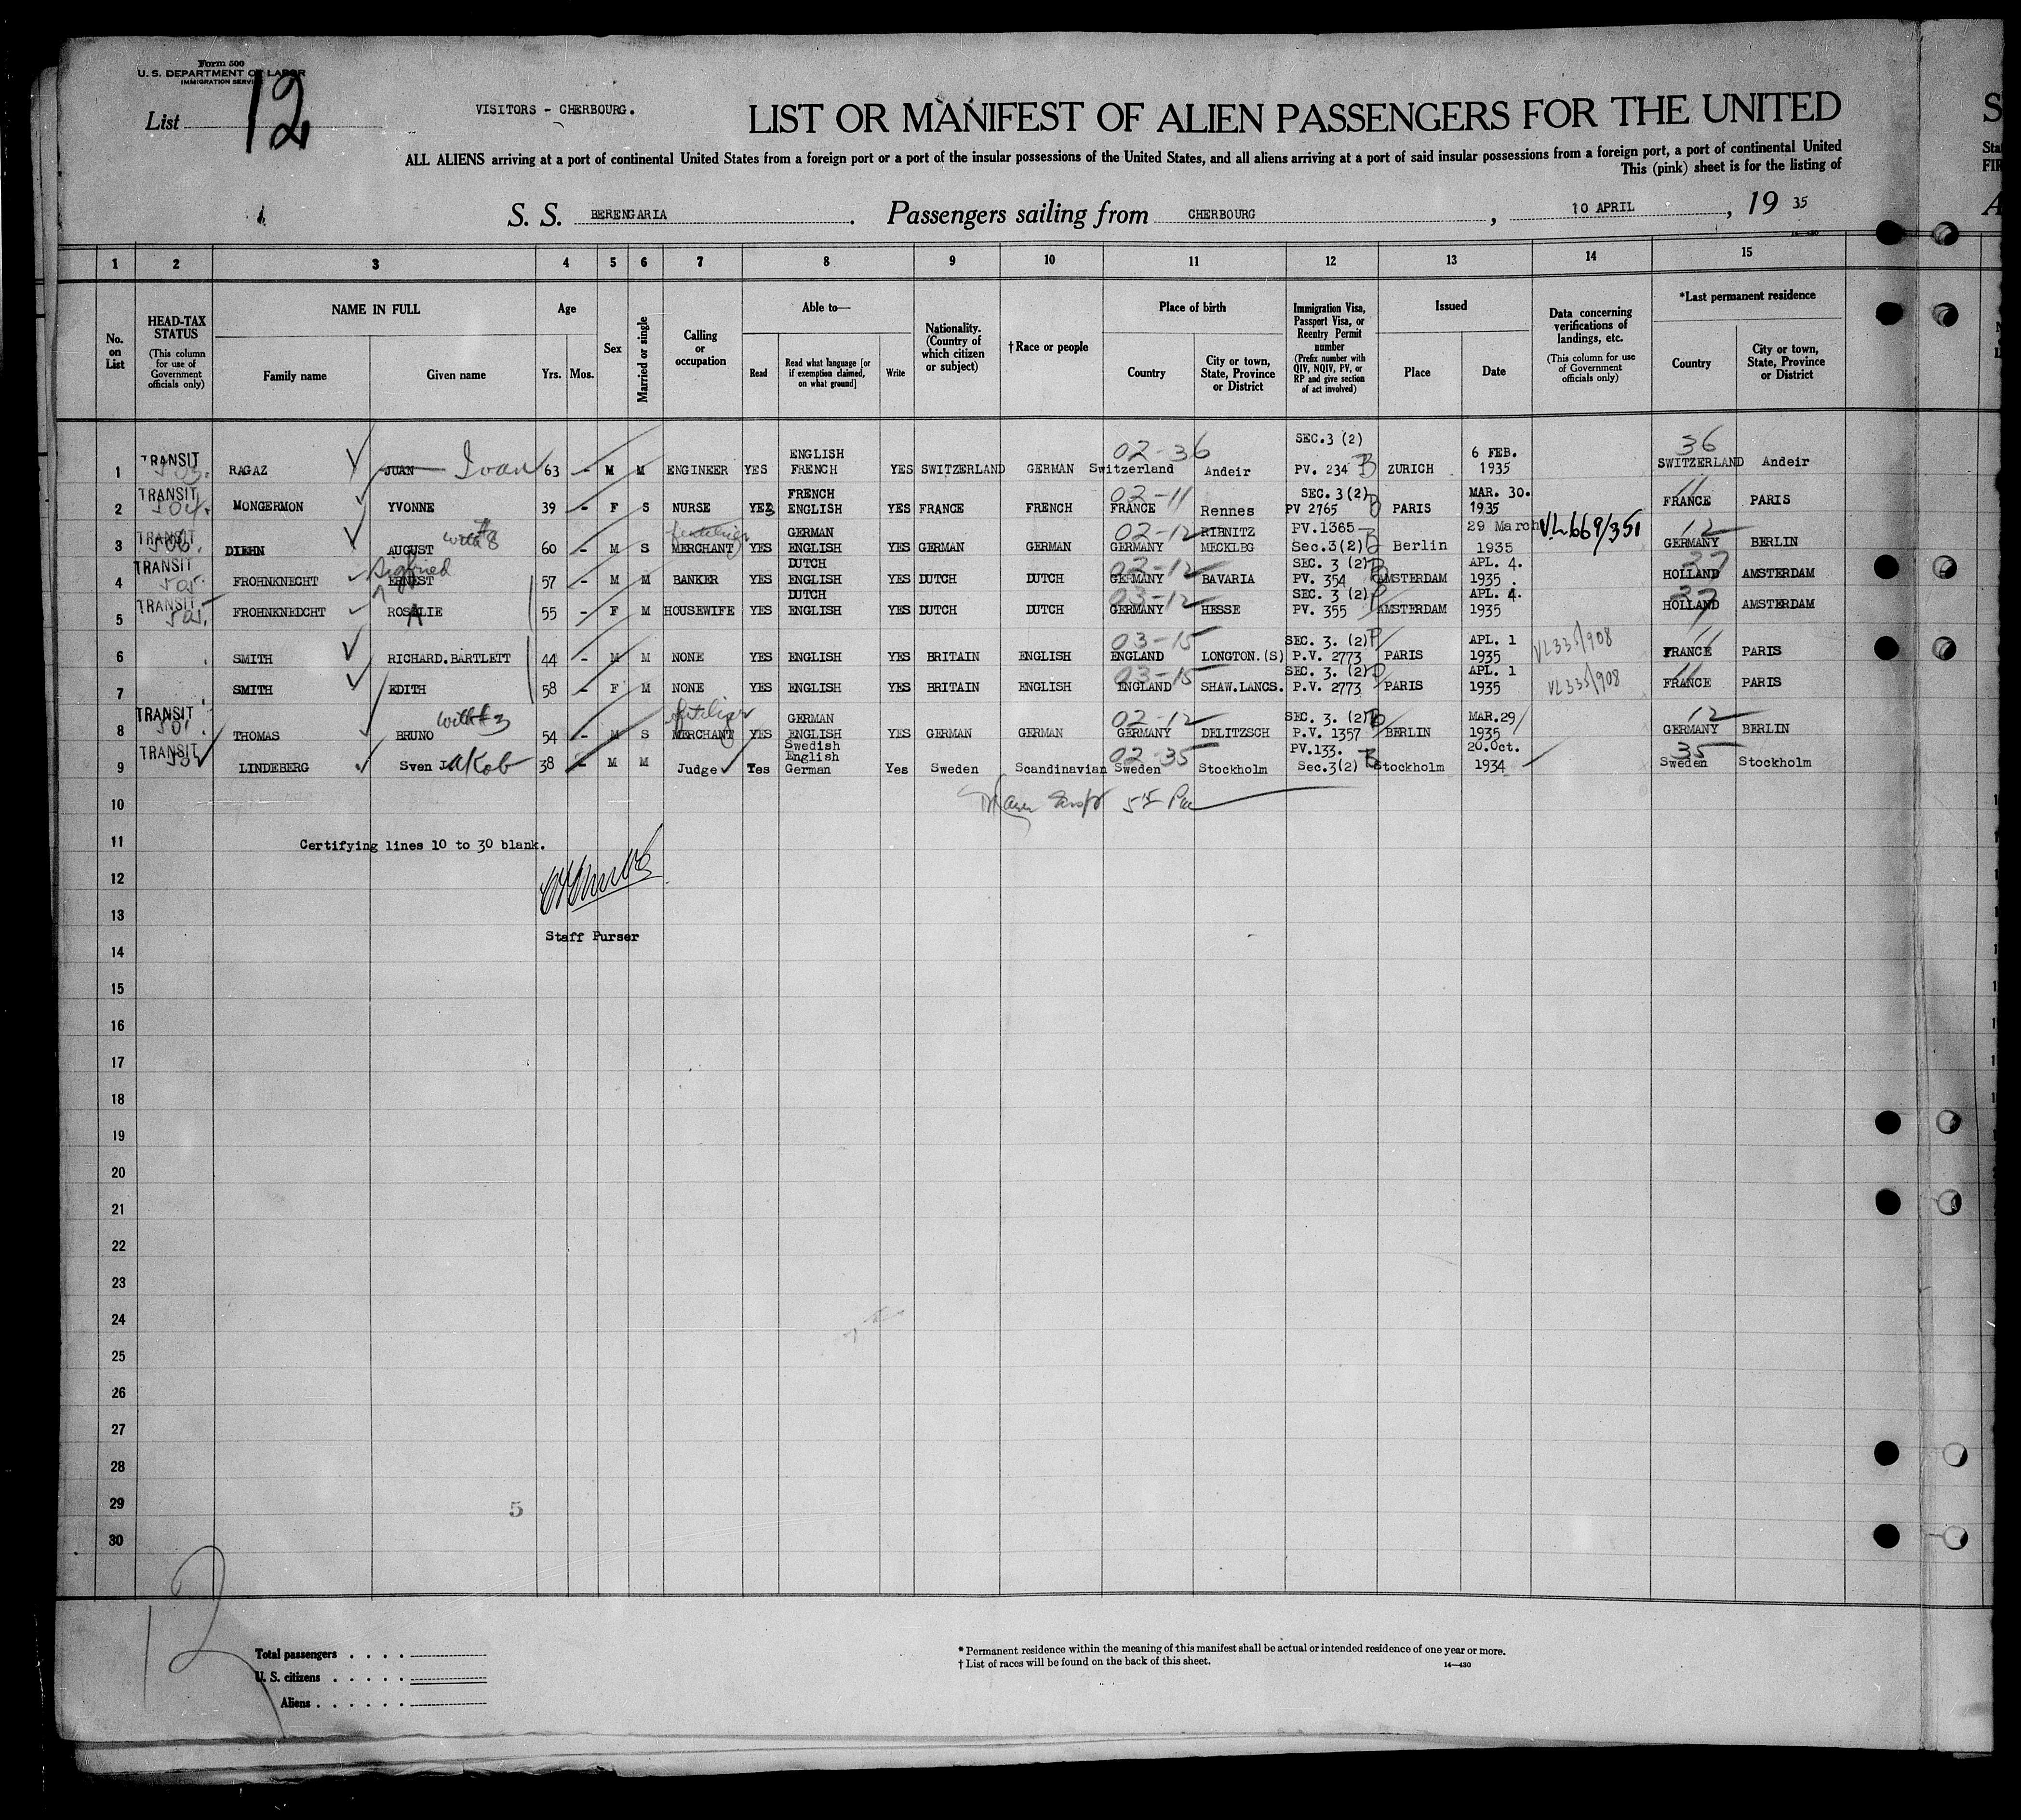 Form 500
U. S. DEPARTMENT OF LABOR
IMMIGRATION SERVICE
List 12
VISITORS - CHERBOURG.
LIST OR MANIFEST OF ALIEN PASSENGERS FOR THE UNITED
ALL ALIENS arriving at a port of continental United States from a foreign port or a port of the insular possessions of the United States, and all aliens arriving at a port of said insular possessions from a foreign port, a port of continental United
This (pink) sheet is for the listing of
S. S. BERENGARIA. Passengers sailing from CHERBOURG, 10 APRIL, 19 35
1 2 3 4 5 6 7 8 9 10 11 12 13 14 15
No. on List
HEAD-TAX STATUS (This column for use of Government officials only)
NAME IN FULL
Family name Given name
Age
Yrs. Mos.
Sex
Married or single
Calling or occupation
Able to—
Read Read what language [or if exemption claimed, on what ground] Write
Nationality. (Country of which citizen or subject)
†Race or people
Place of birth
Country City or town, State, Province or District
Immigration Visa, Passport Visa, or Reentry Permit number (Prefix number with QIV, NQIV, PV, or RP and give section of act involved)
Issued
Place Date
Data concerning verifications of landings, etc. (This column for use of Government officials only)
*Last permanent residence
Country City or town, State, Province or District
1 TRANSIT RAGAZ JUAN Ivan 63 - M M ENGINEER YES ENGLISH FRENCH YES SWITZERLAND GERMAN 02-36 Switzerland Andeir SEC.3 (2) PV. 234 ZURICH 6 FEB. 1935 36 SWITZERLAND Andeir
2 TRANSIT 504. MONGERMON YVONNE 39 - F S NURSE YES FRENCH ENGLISH YES FRANCE FRENCH 02-11 FRANCE Rennes SEC. 3(2) PV 2765 PARIS MAR. 30. 1935 11 FRANCE PARIS
3 TRANSIT 506. DIEHN AUGUST with #8 60 - M S MERCHANT YES GERMAN ENGLISH YES GERMAN GERMAN 02-12 GERMANY RIBNITZ MECKLBG PV.1365 Sec.3(2) Berlin 29 March 1935 VL669/351 12 GERMANY BERLIN
4 TRANSIT 505. FROHNKNECHT Sigfried ERNEST 57 - M M BANKER YES DUTCH ENGLISH YES DUTCH DUTCH 02-12 GERMANY BAVARIA SEC. 3 (2) PV. 354 AMSTERDAM APL. 4. 1935. 27 HOLLAND AMSTERDAM
5 TRANSIT 505. FROHNKNEDCHT ROSALIE 55 - F M HOUSEWIFE YES DUTCH ENGLISH YES DUTCH DUTCH 03-12 GERMANY HESSE SEC. 3 (2) PV. 355 AMSTERDAM APL. 4. 1935 27 HOLLAND AMSTERDAM
6 SMITH RICHARD.BARTLETT 44 - M M NONE YES ENGLISH YES BRITAIN ENGLISH 03-15 ENGLAND LONGTON.(S) SEC. 3. (2) P.V. 2773 PARIS APL. 1 1935 VL335/908 11 FRANCE PARIS
7 SMITH EDITH 58 - F M NONE YES ENGLISH YES BRITAIN ENGLISH 03-15 ENGLAND SHAW.LANCS. SEC. 3. (2) P.V. 2773 PARIS APL. 1 1935 VL335/908 11 FRANCE PARIS
8 TRANSIT THOMAS BRUNO with #3 54 - M S MERCHANT YES GERMAN ENGLISH YES GERMAN GERMAN 02-12 GERMANY DELITZSCH SEC. 3. (2) P.V. 1357 BERLIN MAR.29 1935 12 GERMANY BERLIN
9 TRANSIT LINDEBERG Sven Jakob 38 - M M Judge Yes Swedish English German Yes Sweden Scandinavian 02-35 Sweden Stockholm PV.133. Sec.3(2) Stockholm 20.Oct. 1934 35 Sweden Stockholm
10
11 Certifying lines 10 to 30 blank.
12
13
14 Staff Purser
15
16
17
18
19
20
21
22
23
24
25
26
27
28
29 5
30
12
Total passengers
U. S. citizens
Aliens
* Permanent residence within the meaning of this manifest shall be actual or intended residence of one year or more.
† List of races will be found on the back of this sheet. 14—430